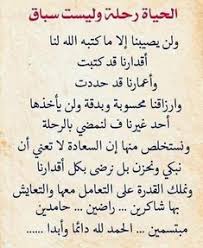 الحياة رحلة وليست سباق
ولن يصيبنا إلا ما كتبه الله لنا
أقدارنا قد كتبت
وأعمارنا قد حددت
وارزقنا محسوبة وبدقة ولن يأخذها
أحد غيرنا فـ لنمضي بالرحلة
ونستخلص منها إن السعادة لا تعني أن
نبكي ونحزن بل نرضى بكل أقدارنا
ونملك القدرة على التعامل معها والتعايش
بها شاكرين ... راضين ... حامدين
مبتسمين ... الحمد لله دائمًا وأبدا ......